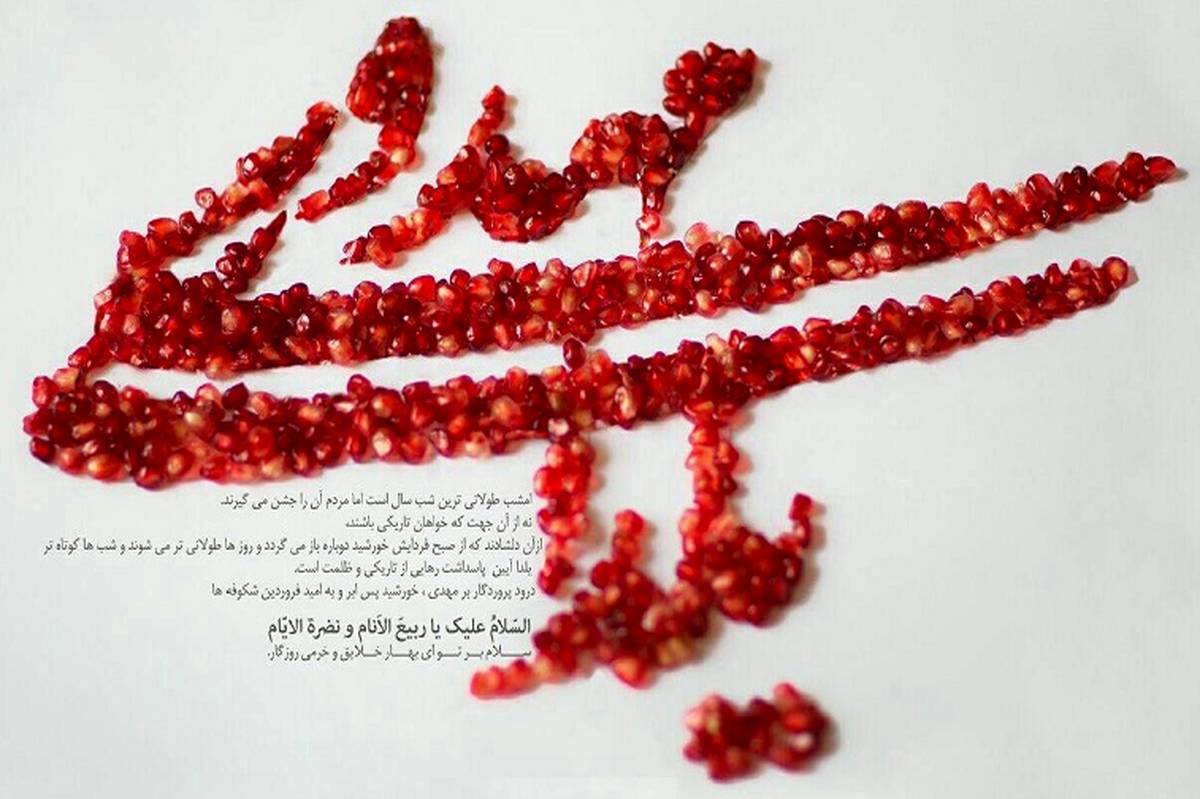 امشب طولانی ترین شب سال است اما مردم آن را جشن می گیرند.
نه از آن جهت که خواهان تاریکی باشند،
ازآن دلشادند که از صبح فردایش خورشید دوباره باز می گردد و روز ها طولانی تر می شوند و شب ها کوتاه تر
یلدا آیین پاسداشت رهایی از تاریکی و ظلمت است.
درود پروردگار بر مهدی ، خورشید پس ابر و به امید فروردین شکوفه ها
السّلامُ علیک یا ربیعَ الاَنام و نضرة الایّام
ســـلام بـر تـو ای بهـار خـلایق و خرمی روزگار.